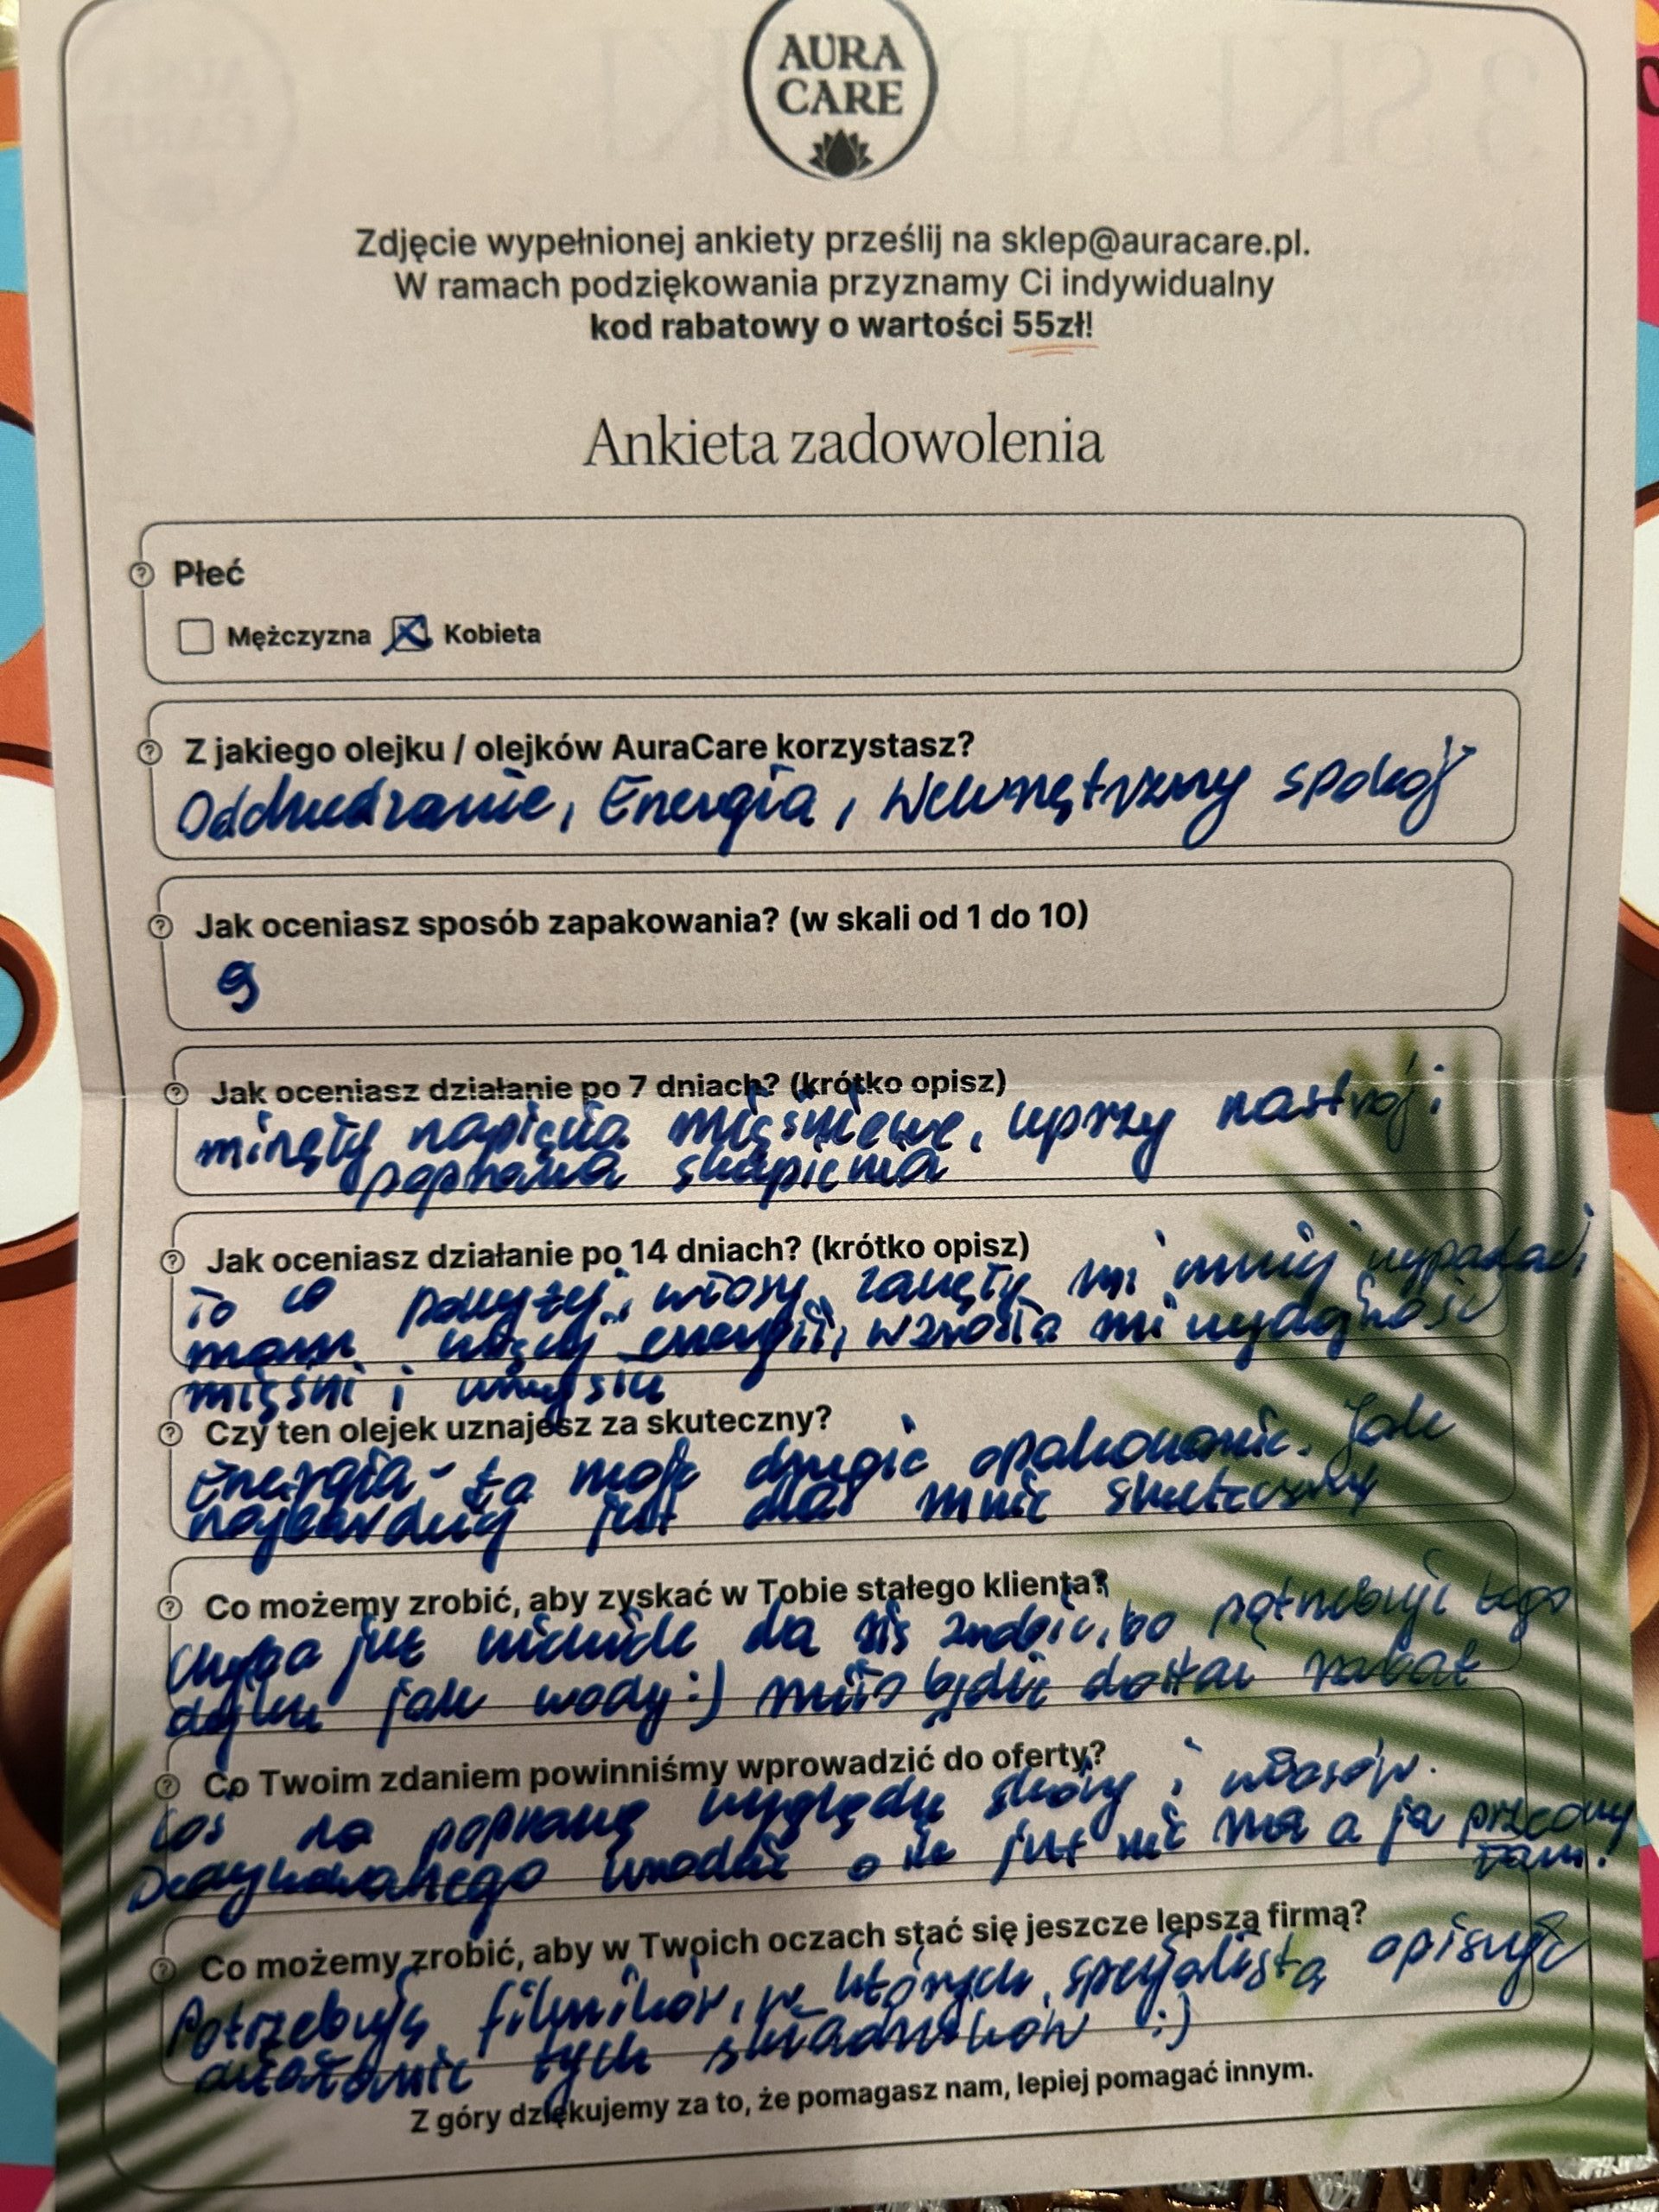 AURA
CARE
Zdjęcie wypełnionej ankiety prześlij na sklep@auracare.pl.
W ramach podziękowania przyznamy Ci indywidualny
kod rabatowy o wartości 55zł!
Ankieta zadowolenia
Płeć
Mężczyzna Kobieta
Z jakiego olejku / olejków AuraCare korzystasz?
Odchudzanie, Energia, Wewnętrzny spokój
Jak oceniasz sposób zapakowania? (w skali od 1 do 10)
9
Jak oceniasz działanie po 7 dniach? (krótko opisz)
minęły napięcia mięśniowe, lepszy nastrój i
poprawa skupienia
Jak oceniasz działanie po 14 dniach? (krótko opisz)
To co powyżej i włosy zaczęły mi mniej wypadać i
mam więcej energii, wzrosła mi wydajność
mięśni i umysłu
Czy ten olejek uznajesz za skuteczny?
Energia - to moje drugie opakowanie. Jak
najbardziej jest dla mnie skuteczny
Co możemy zrobić, aby zyskać w Tobie stałego klienta?
Chyba już niewiele da się zrobić, bo potrzebuję tego
olejku jak wody :) miło będzie dostać rabat
Co Twoim zdaniem powinniśmy wprowadzić do oferty?
Coś na poprawę wyglądu skóry i włosów.
Dedykowanego urodzie o ile już nie ma a ja przeoczyłam!
Co możemy zrobić, aby w Twoich oczach stać się jeszcze lepszą firmą?
Potrzebuję filmików, w których specjalista opisuje
działanie tych składników :)
Z góry dziękujemy za to, że pomagasz nam, lepiej pomagać innym.